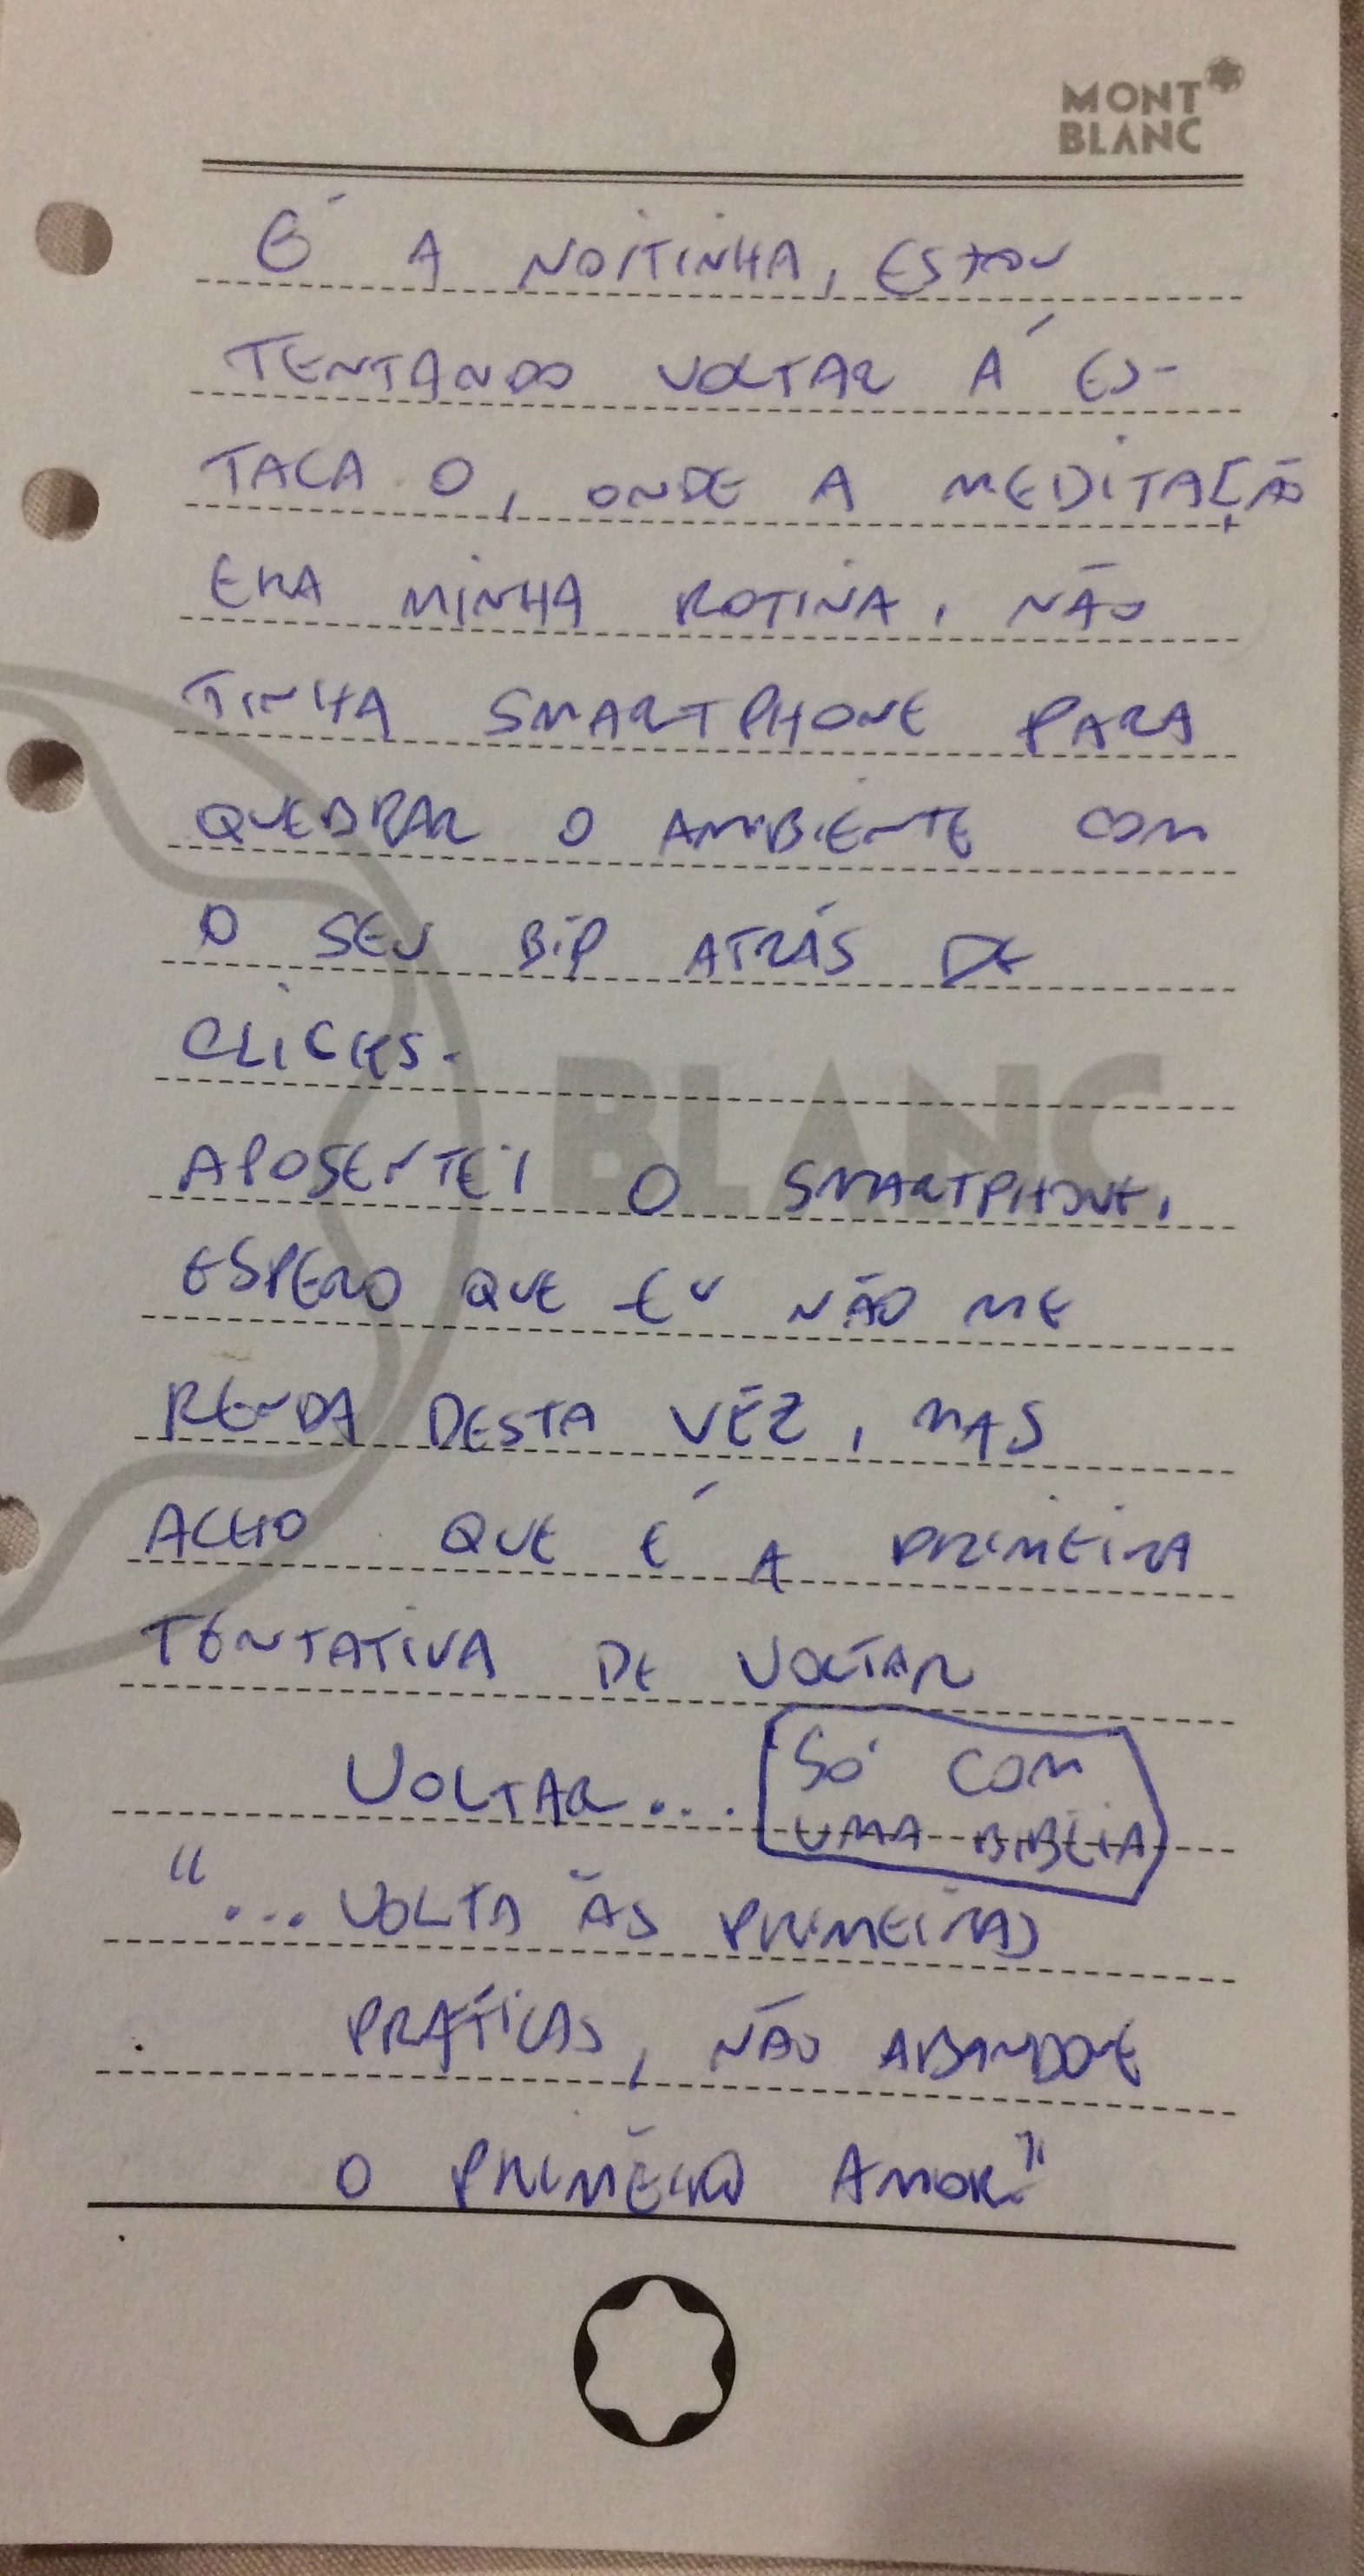 MONT
BLANC
É A NOITINHA, ESTOU
TENTANDO VOLTAR Á ES-
TACA O, ONDE A MEDITAÇÃO
ERA MINHA ROTINA, NÃO
TINHA SMARTPHONE PARA
QUEBRAR O AMBIENTE COM
O SEU BIP ATRÁS DE
CLICKS.
APOSENTEI O SMARTPHONE,
ESPERO QUE EU NÃO ME
RENDA DESTA VÊZ, MAS
ACHO QUE É A PRIMEIRA
TENTATIVA DE VOLTAR
VOLTAR... SÓ COM
UMA BIBLIA
"... VOLTA ÀS PRIMEIRAS
PRÁTICAS, NÃO ABANDONE
O PRIMEIRO AMOR."
BLANC